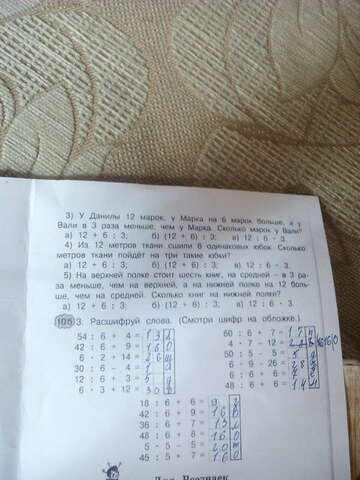 3) У Данилы 12 марок, у Марка на 6 марок больше, а у
Вали в 3 раза меньше, чем у Марка. Сколько марок у Вали?
а) 12 + 6 : 3; б) (12 + 6) : 3; в) 12 : 6 · 3.
4) Из 12 метров ткани сшили 6 одинаковых юбок. Сколько
метров ткани пойдёт на три такие юбки?
а) 12 + 6 : 3; б) (12 + 6) : 3; в) 12 : 6 · 3.
5) На верхней полке стоит шесть книг, на средней – в 3 ра-
за меньше, чем на верхней, а на нижней полке на 12 боль-
ше, чем на средней. Сколько книг на нижней полке?
а) 12 + 6 : 3; б) (12 + 6) : 3; в) 12 : 6 · 3.
106 3. Расшифруй слова. (Смотри шифр на обложке.)
54 : 6 + 4 = 13
42 : 6 + 9 = 16 О
6 · 2 + 14 = 26
30 : 6 – 4 = 1
12 : 6 + 3 = 5
6 · 3 + 12 = 30
60 : 6 + 7 = 17
4 · 7 – 12 =
50 : 5 – 5 = 5
6 · 9 – 26 = 28
6 : 6 + 6 = 7
48 : 6 + 6 = 14
18 : 6 + 6 = 9
42 : 6 + 9 = 16 О
36 : 6 + 7 = 13
48 : 6 + 8 = 16 О
5 · 5 – 5 = 20
45 : 5 + 7 = 16 О
Для Всезнаек